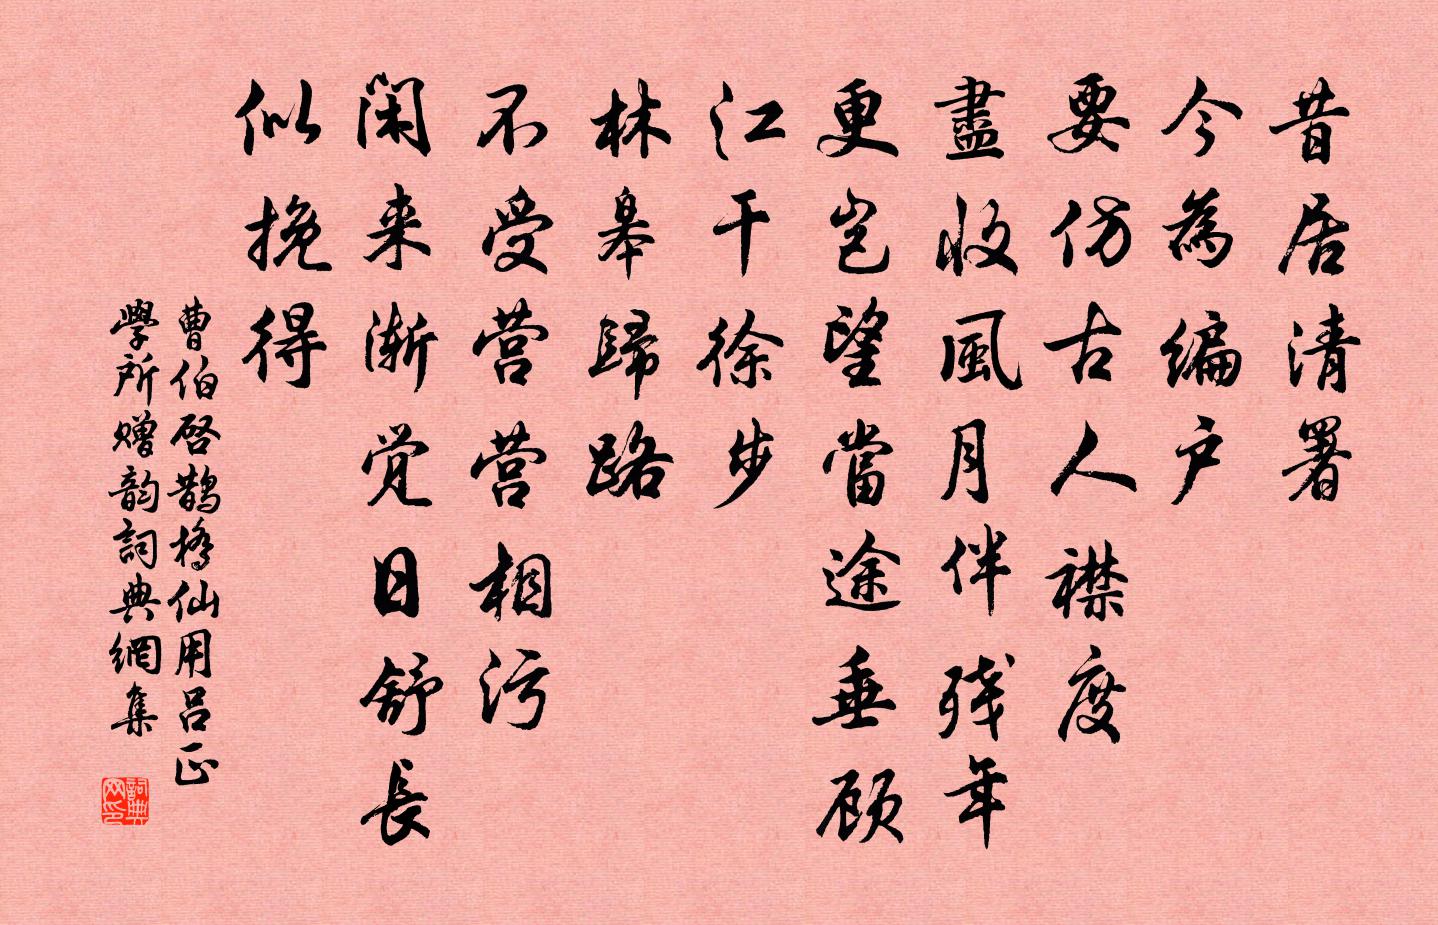 昔居清署
今為编户
要仿古人襟度
盡收風月伴残年
更岂望當途垂顾
江干徐步
林皋歸路
不受营营相污
闲来渐觉日舒長
似挽得
曹伯启鹊橋仙用吕正
學所赠韵詞典網集
詞典
网印